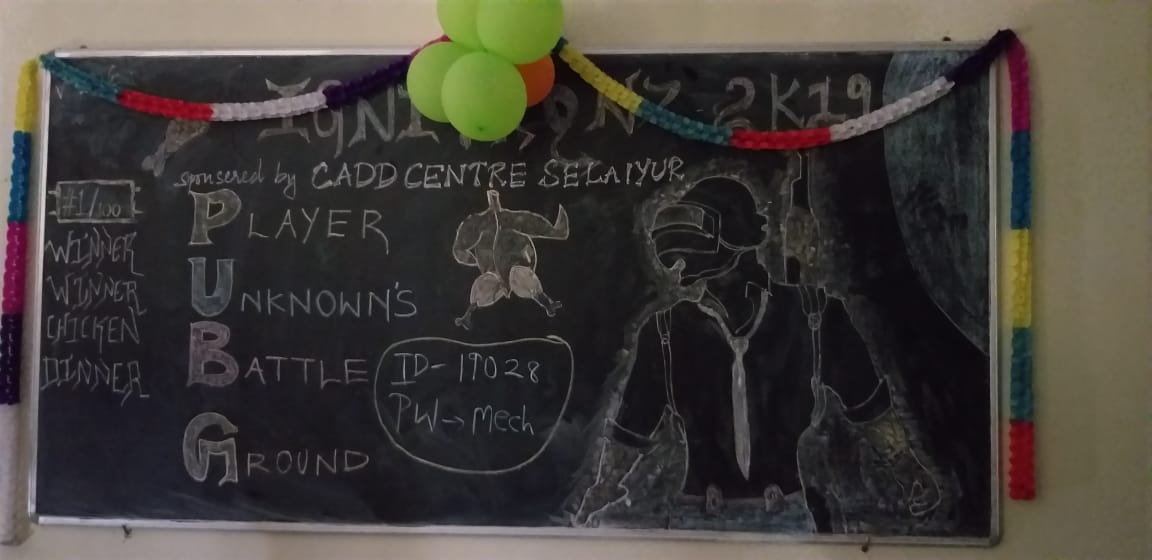 2K19
sponsered by CADD CENTRE SELAIYUR
#1/100
WINNER
WINNER
CHICKEN
DINNER
PLAYER
UNKNOWN'S
BATTLE
GROUND
ID- 19028
PW→Mech